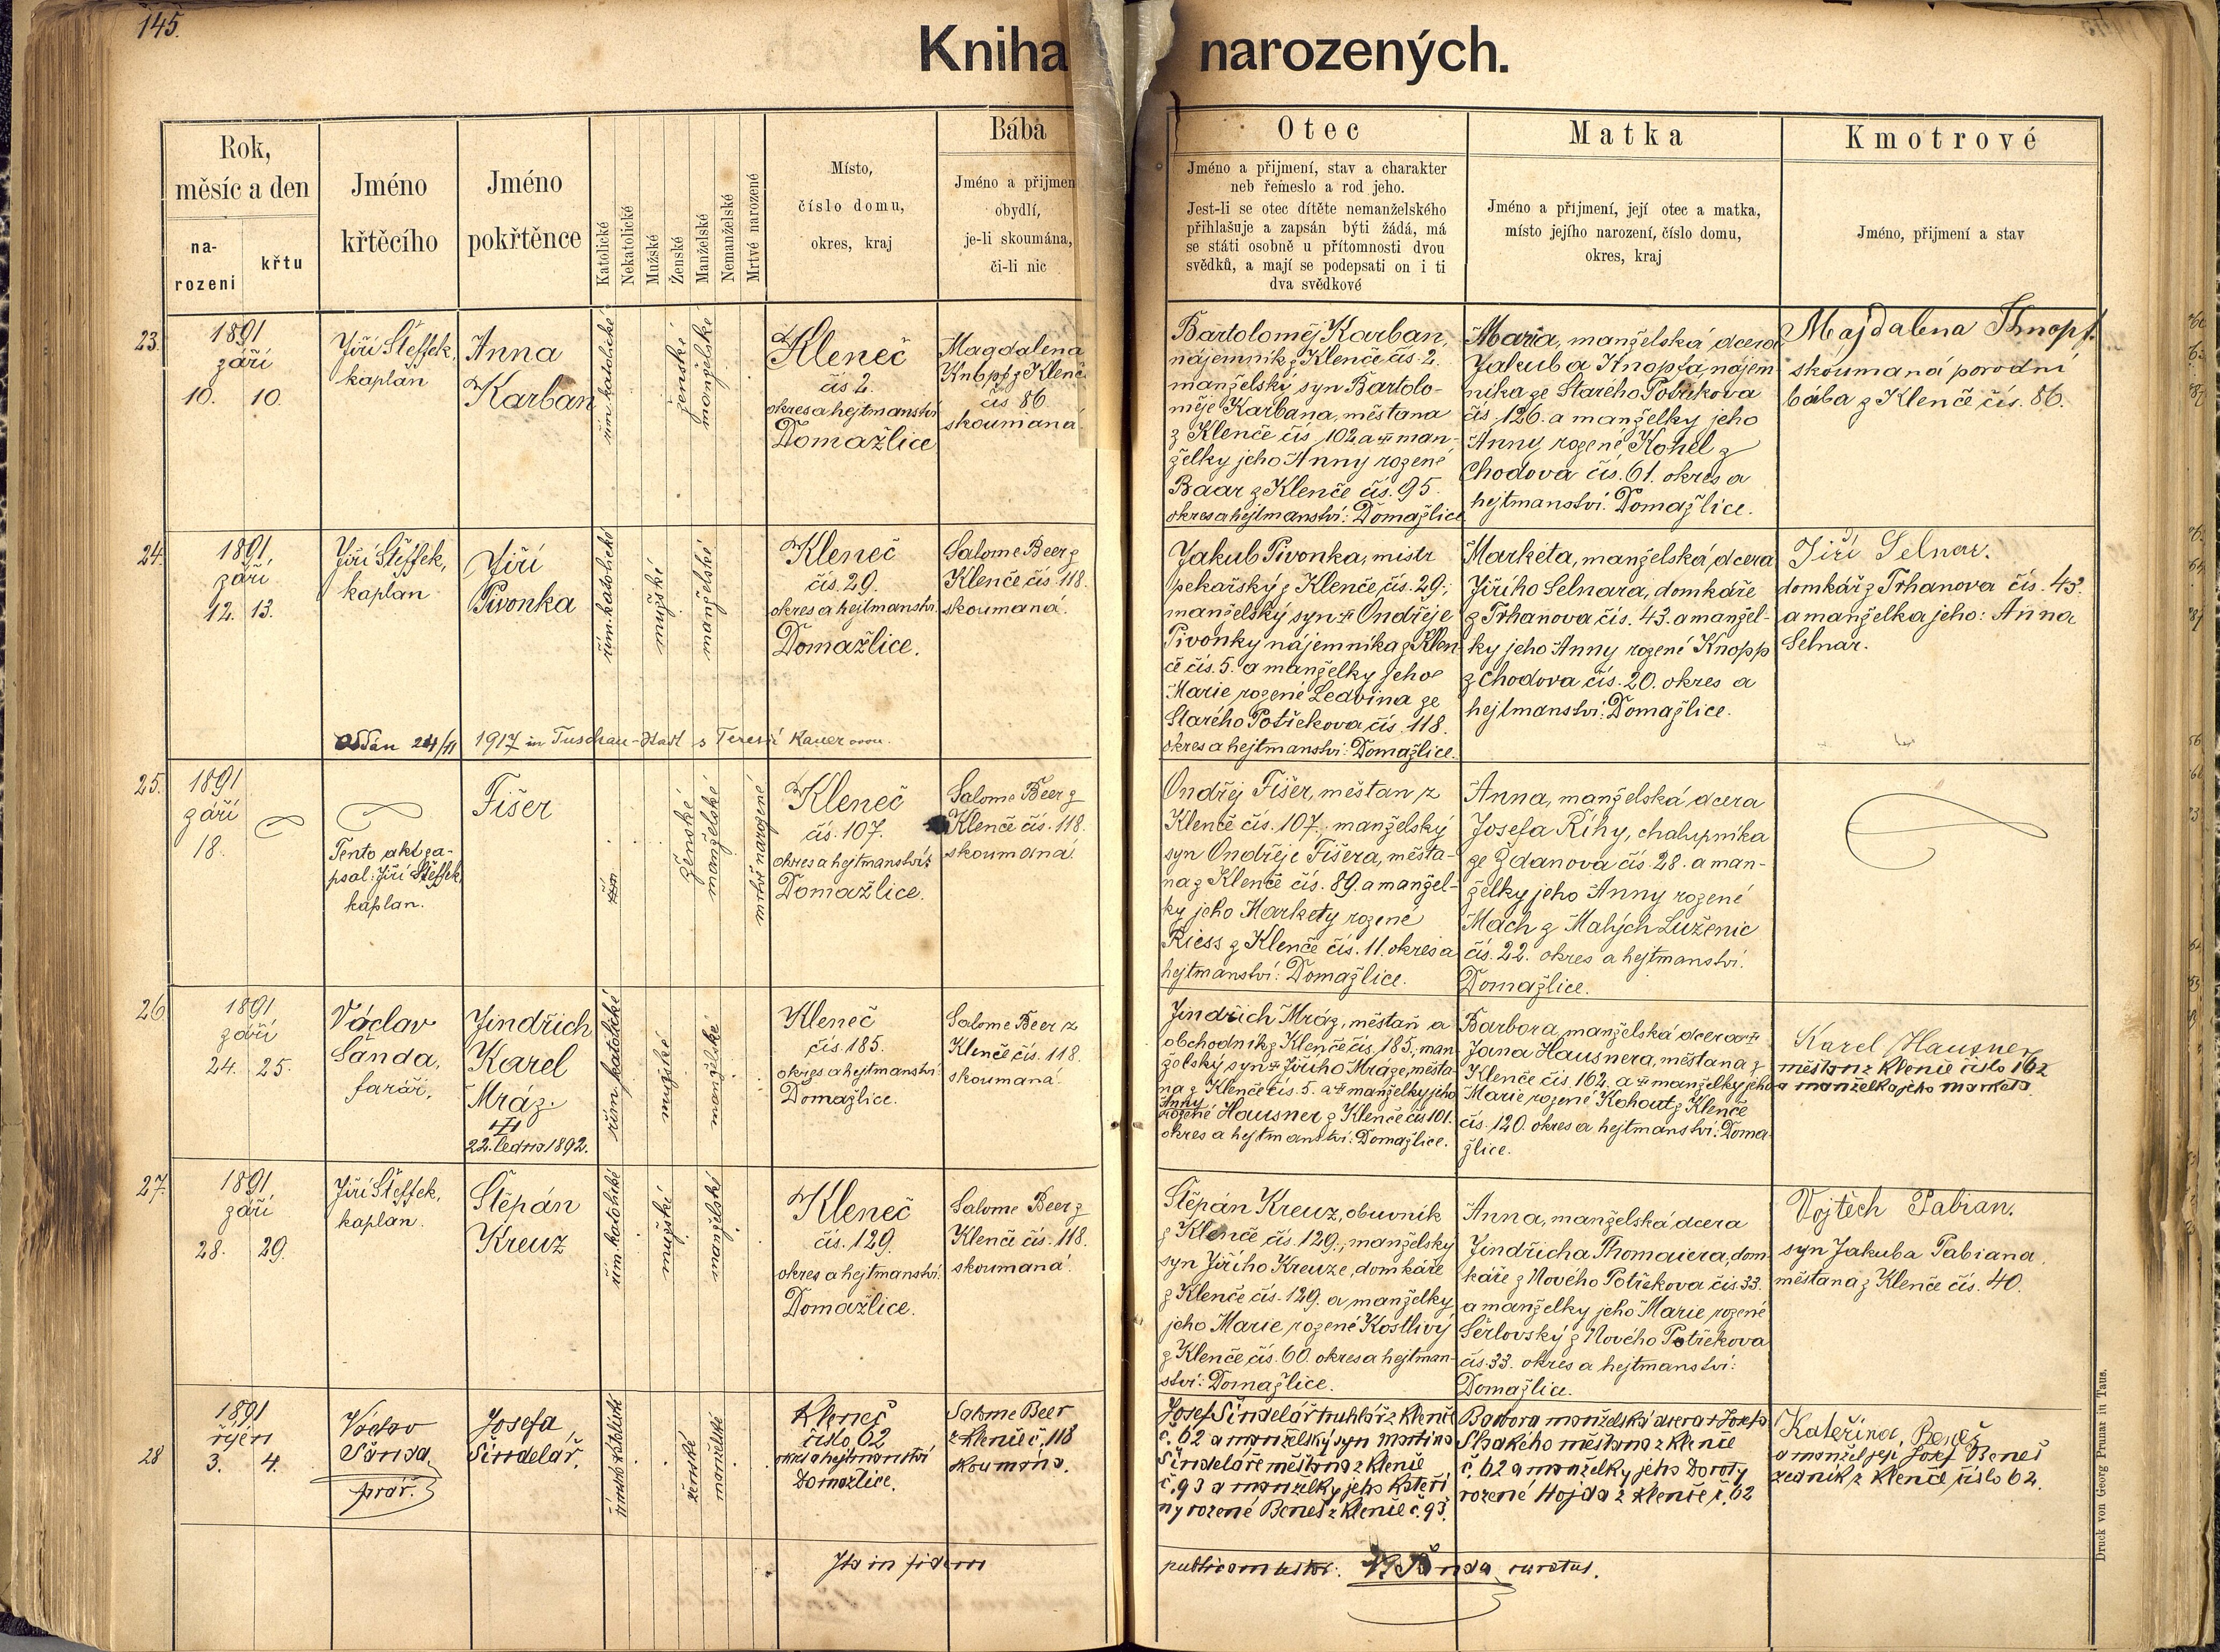 145.
Kniha narozených.
Rok,
měsíc a den
na-
rozeni
křtu
Jméno
křtěcího
Jméno
pokřtěnce
Katolické
Nekatolické
Mužské
Ženské
Manželské
Nemanželské
Mrtvé narozené
Místo,
číslo domu,
okres, kraj
Bába
Jméno a přijmen
obydlí,
je-li skoumána,
či-li nic
Otec
Jméno a přijmení, stav a charakter
neb řemeslo a rod jeho.
Jest-li se otec dítěte nemanželského
přihlašuje a zapsán býti žádá, má
se státi osobně u přítomnosti dvou
svědků, a mají se podepsati on i ti
dva svědkové
Matka
Jméno a přijmení, její otec a matka,
místo jejího narození, číslo domu,
okres, kraj
Kmotrové
Jméno, přijmení a stav
23.
1891
září
10. 10.
Jiří Šteffek,
kaplan
Anna
Karban
řím. katolické
ženské
manželské
Kleneč
čís 2.
okres a hejtmanství
Domažlice
Magdalena
Knopf z Klenč
čís 86
skoumaná
Bartoloměj Karban,
nájemník z Klenče čís. 2.
manželský syn Bartolo-
měje Karbana, měštana
z Klenče čís. 102 a man-
želky jeho Anny rozené
Baar z Klenče čís. 95.
okres a hejtmanství: Domažlice
Maria, manželská dcera
Jakuba Knopfa, nájem
níka ze Starého Postřekova
čís. 126. a manželky jeho
Anny rozené Kohel z
Chodova čís. 61. okres a
hejtmanství: Domažlice.
Majdalena Knopf.
skoumaná porodní
bába z Klenče čís. 86.
24.
1891.
září
12. 13.
Jiří Šteffek,
kaplan
Jiří
Pivonka
řím. katolické
mužské
manželské
Kleneč
čís. 29.
okres a hejtmanství.
Domažlice.
Salome Beer z
Klenče čís. 118.
skoumaná.
Jakub Pivonka, mistr
pekařský z Klenče čís. 29.;
manželský syn Ondřeje
Pivonky nájemníka z Klen
če čís. 5. a manželky jeho
Marie rozené Ledvina ze
Starého Postřekova čís. 118.
okres a hejtmanství: Domažlice.
Marketa, manželská dcera
Jiřího Selnara, domkáře
z Trhanova čís. 43. a manžel-
ky jeho Anny rozené Knopp
z Chodova čís. 20. okres a
hejtmanství: Domažlice.
Jiří Selnar.
domkář z Trhanova čís. 43.
a manželka jeho: Anna
Selnar.
Oddán 24/11 1917 in Tuschau-Stadt s Teresií Kauer
25.
1891
září
18.
Tento akt za-
psal: Jiří Šteffek
kaplan.
Fišer
řím
ženské
manželské
mrtvě narozené
Kleneč
čís. 107.
okres a hejtmanství:
Domažlice.
Salome Beer z
Klenče čís. 118.
skoumaná.
Ondřej Fišer, měštan z
Klenče čís. 107.; manželský
syn Ondřeje Fišera, měšta-
na z Klenče čís. 89. a manžel-
ky jeho Markety rozené
Riess z Klenče čís. 11. okres a
hejtmanství: Domažlice.
Anna, manželská dcera
Josefa Říhy, chalupníka
ze Ždanova čís. 28. a man-
želky jeho Anny rozené
Mach z Malých Luženic
čís. 22. okres a hejtmanství.
Domažlice.
26
1891
září
24. 25.
Václav
Šanda,
farář.
Jindřich
Karel
Mráz.
22. ledna 1892.
řím. katolické
mužské
manželské
Kleneč
čís. 185.
okres a hejtmanství:
Domažlice.
Salome Beer z
Klenče čís. 118.
skoumaná.
Jindřich Mráz, měštan a
obchodník z Klenče čís. 185., man
želský syn Jiřího Mráze, měšta-
na z Klenče čís. 5. a manželky jeho
Anny
rozené Hausner z Klenče čís 101.
okres a hejtmanství: Domažlice.
Barbora, manželská dcera
Jana Hausnera, měštana z
Klenče čís. 162. a manželky jeho
Marie rozené Kohout z Klenče
čís. 120. okres a hejtmanství: Doma-
žlice.
Karel Hausner
měštan z Klenče číslo 162
a manželka jeho Marketa
27.
1891
září
28. 29.
Jiří Šteffek,
kaplan.
Štěpán
Kreuz
řím. katolické
mužské
manželské
Kleneč
čís. 129.
okres a hejtmanství:
Domažlice.
Salome Beer z
Klenče čís. 118.
skoumaná.
Štěpán Kreuz, obuvník
z Klenče čís. 129., manželský
syn Jiřího Kreuze, domkáře
z Klenče čís. 129. a manželky
jeho Marie rozené Kostlivý
z Klenče čís. 60. okres a hejtman-
ství: Domažlice.
Anna, manželská dcera
Jindřicha Thomaiera, dom-
káře z Nového Postřekova čís. 33.
a manželky jeho Marie rozené
Šerlovský z Nového Postřekova
čís. 33. okres a hejtmanství:
Domažlice.
Vojtěch Fabian.
syn Jakuba Fabiana
měštana z Klenče čís. 40.
28
1891
říjen
3. 4.
Václav
Šanda,
farář.
Josefa
Šindelář.
římsko katolické
ženské
manželské
Kleneč
číslo 62
okres a hejtmanství
Domažlice.
Salome Beer
z Klenče č. 118
skoumána.
Josef Šindelář truhlář z Klenče
č. 62 a manželský syn Martina
Šindeláře měštana z Klenče
č. 93 a manželky jeho Kateři
ny rozené Beneš z Klenče č. 93.
Barbora manželská dcera Josefa
měštana z Klenče
č. 62 a manželky jeho Doroty
rozené Hojda z Klenče č. 62
Kateřina Beneš
a manžel její Josef Beneš
zedník z Klenče číslo 62.
Ita in fidem publicam testor: V. Šanda, curatus.
Druck von Georg Prunar in Taus.